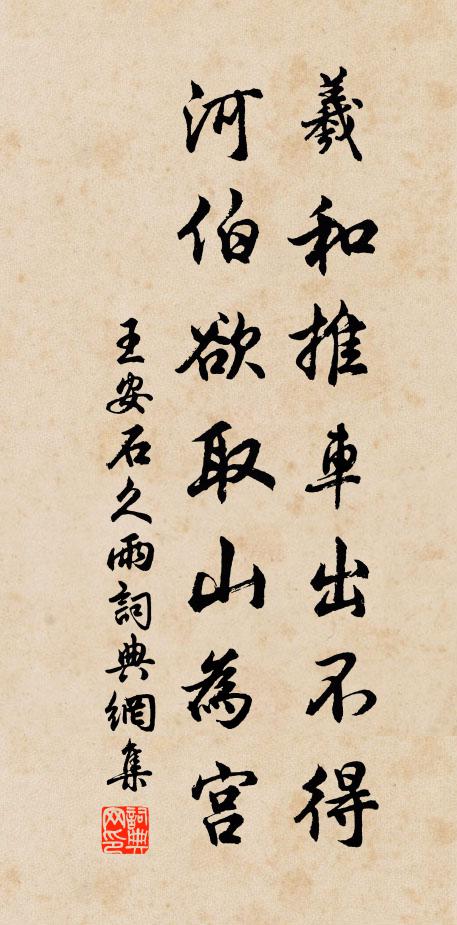 羲和推車出不得
河伯欲取山為宮
王安石久雨詞典網集
詞典網印